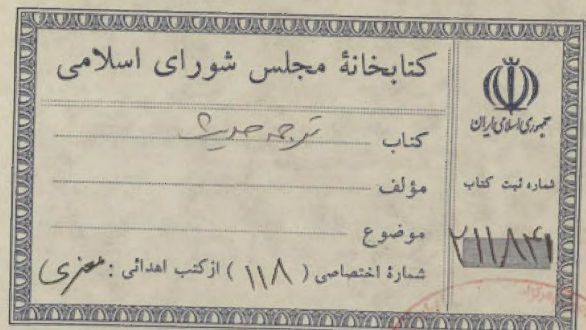 کتابخانهٔ مجلس شورای اسلامی
کتاب ترجمه حدیث
مؤلف
موضوع
شمارهٔ اختصاصی ( ۱۱۸ ) از کتب اهدائی :
جمهوری اسلامی ایران
شماره ثبت کتاب
۲۱۱۸۴۱